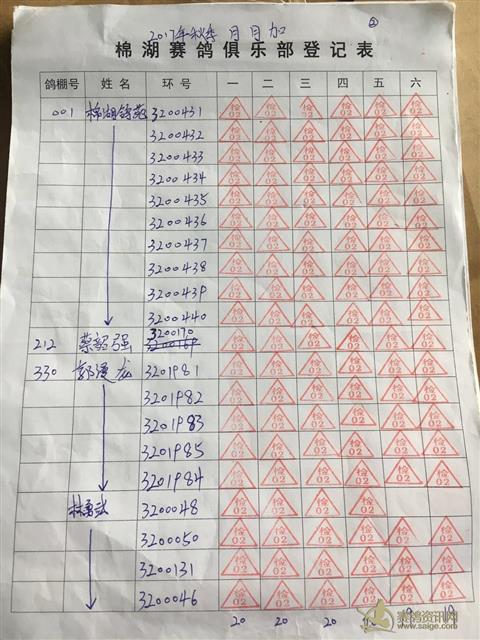 2017年秋季 月月加 ②
棉湖赛鸽俱乐部登记表
鸽棚号 姓名 环号 一 二 三 四 五 六
001 棉湖鸽苑 3200431 检02 检02 检02 检02 检02 检02
3200432 检02 检02 检02 检02 检02 检02
3200433 检02 检02 检02 检02 检02 检02
3200434 检02 检02 检02 检02 检02 检02
3200435 检02 检02 检02 检02 检02 检02
3200436 检02 检02 检02 检02 检02 检02
3200437 检02 检02 检02 检02 检02 检02
3200438 检02 检02 检02 检02 检02 检02
3200439 检02 检02 检02 检02 检02 检02
3200440 检02 检02 检02 检02 检02 检02
3200170
212 蔡 强 3200169 检02 检02 检02 检02 检02 检02
330 郭漫龙 3201981 检02 检02 检02 检02 检02 检02
3201982 检02 检02 检02 检02 检02 检02
3201983 检02 检02 检02 检02 检02 检02
3201985 检02 检02 检02 检02 检02 检02
3201984 检02 检02 检02 检02 检02 检02
林勇 3200048 检02 检02 检02 检02
3200050 检02 检02 检02 检02 检02 检02
3200131 检02 检02 检02 检02 检02 检02
3200046 检02 检02 检02 检02 检02 检02
20 20 20 19 19
赛鸽资讯网
www.saige.com